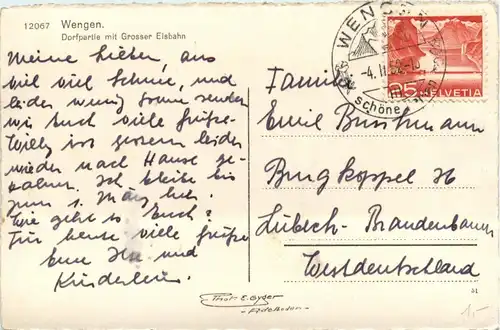 12067 Wengen.
Dorfpartie mit Grosser Eisbahn
WENGEN
-4.II.52-
schöne
25 HELVETIA
Meine Lieben, aus
viel viel Schnee, und
leider wenig Sonne senden
wir Euch viele Grüße.
Willy ist gestern leider
wieder nach Hause ge-
fahren. Ich bleibe bis
zum 1. März hier.
Wie geht es Euch?
Für heute viele Grüße
Eure Ilse und
Kinderlein.
Familie
Emil
Burgkoppel 26
Lübeck-Brandenbaum
Westdeutschland
Phot. E. Gyger
-Adelboden-
51
1,-